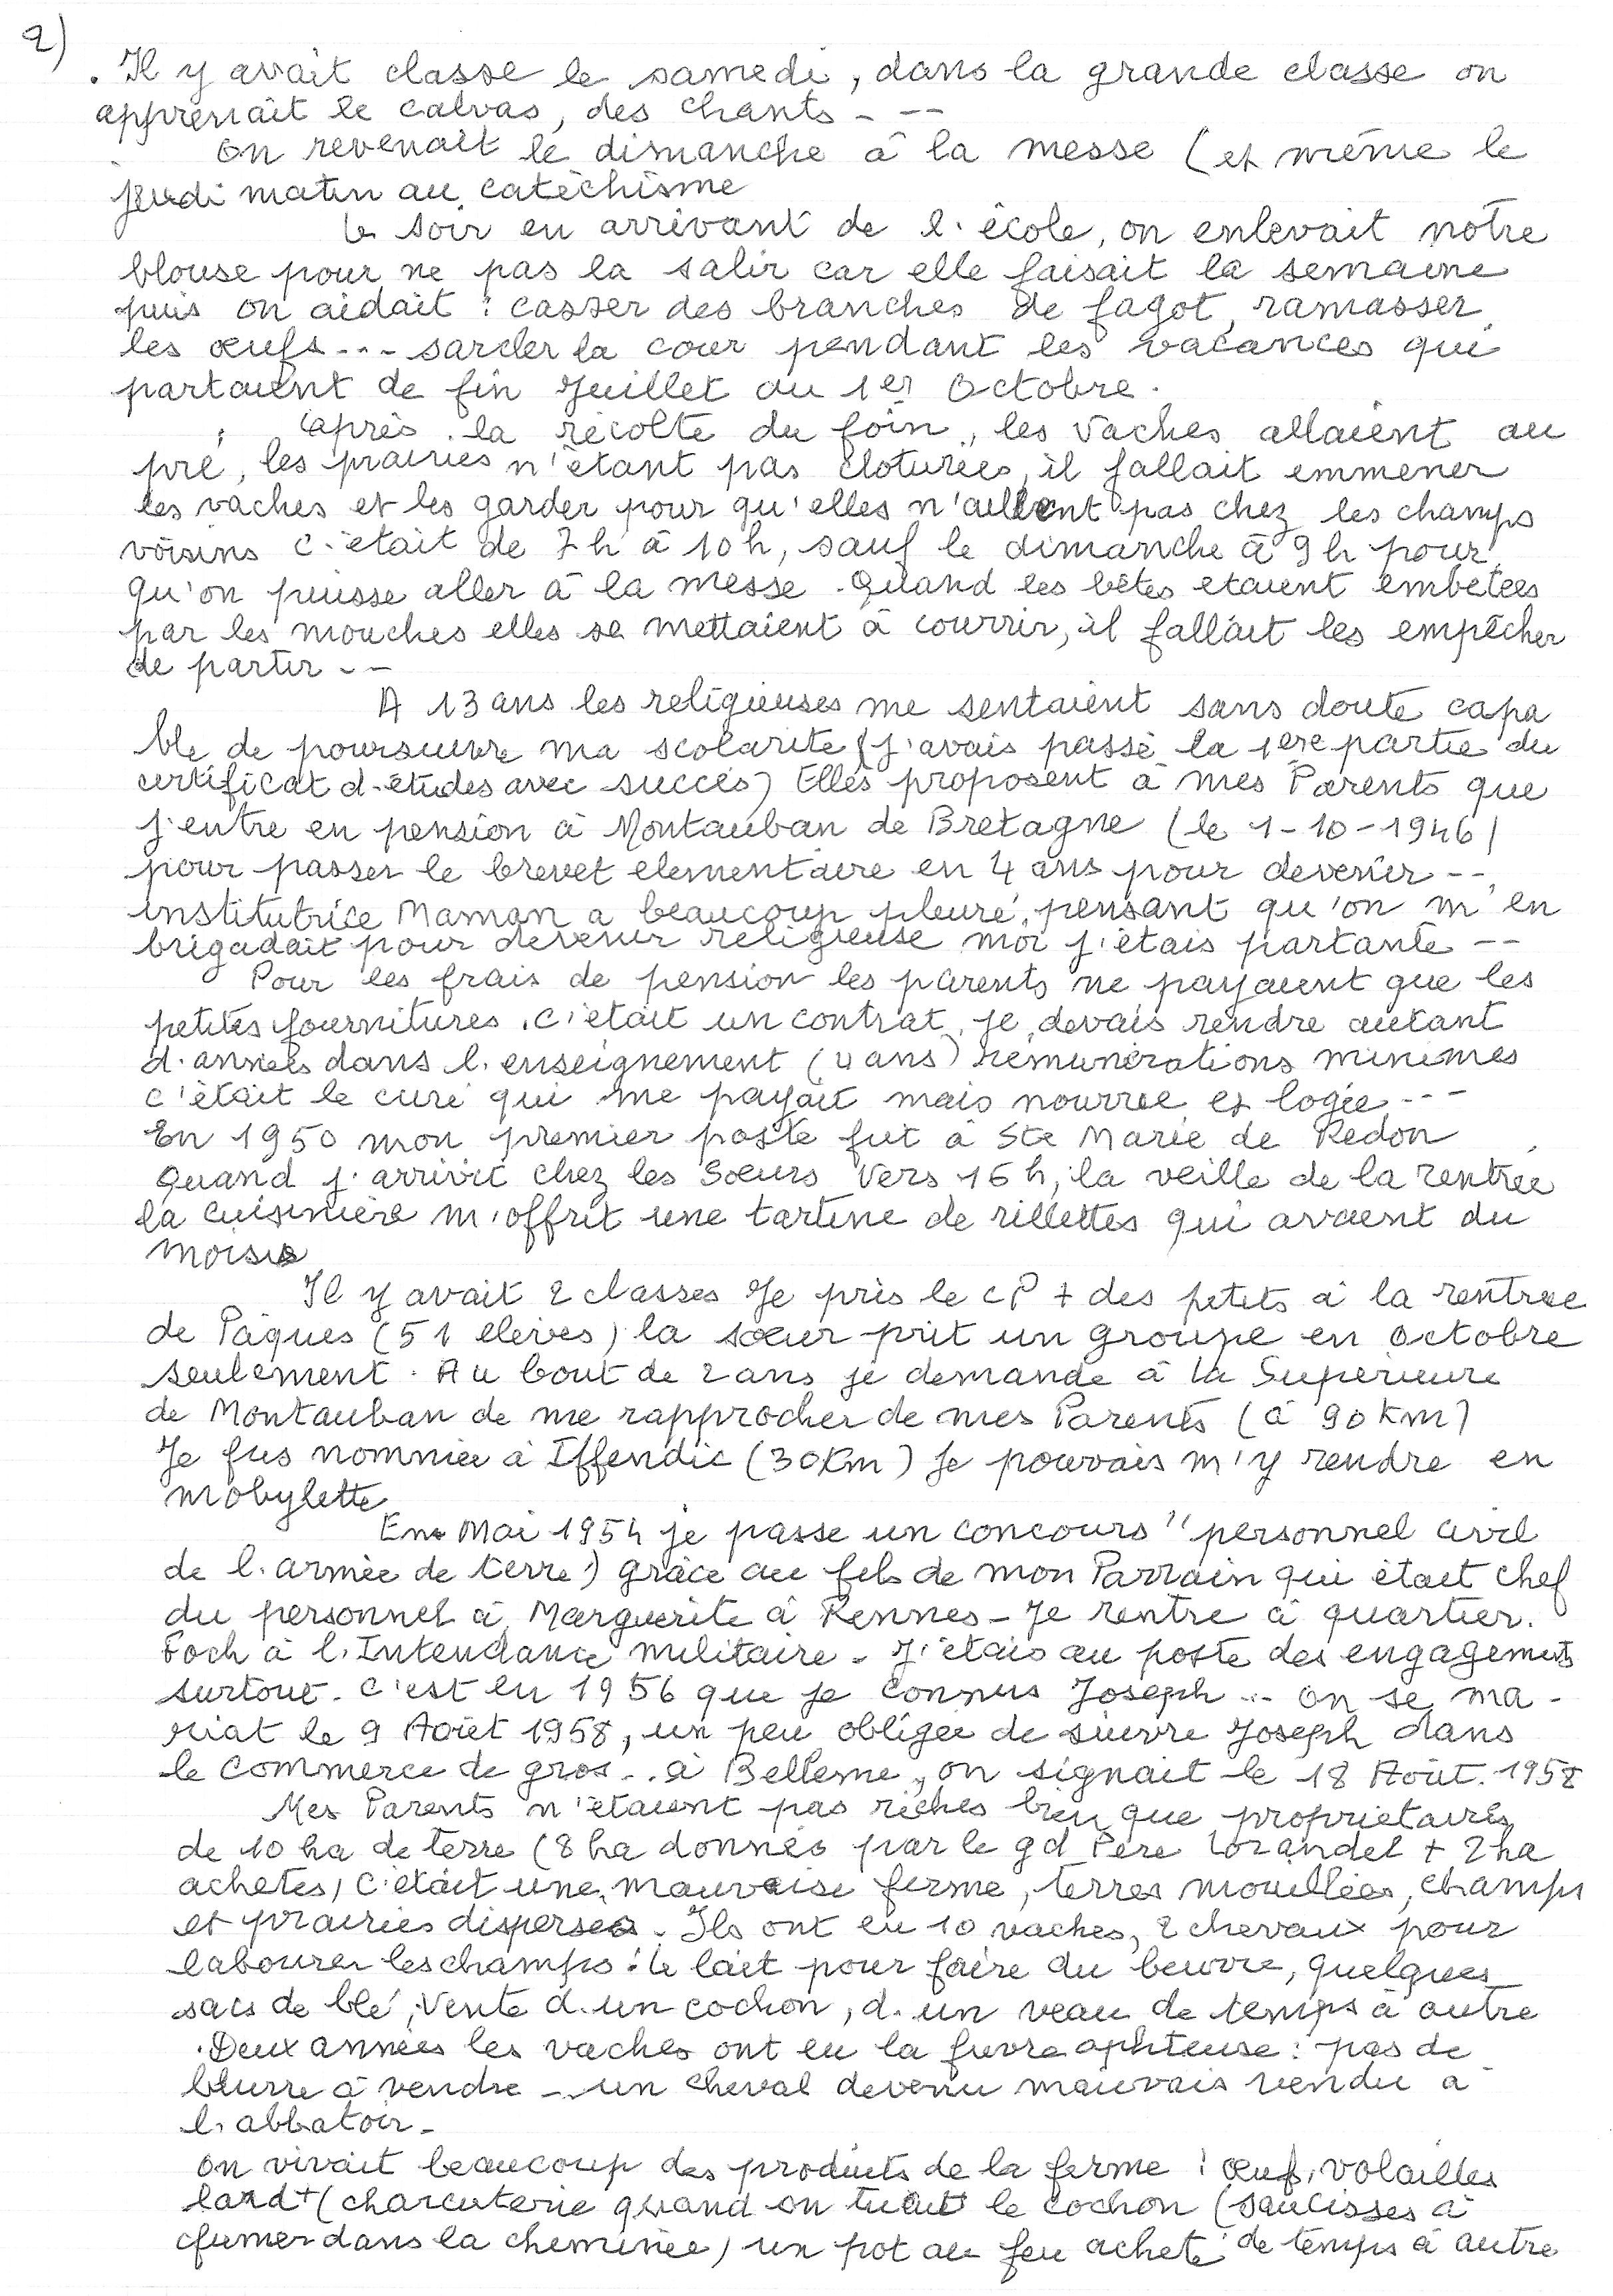 2)
. Il y avait classe le samedi, dans la grande classe on
apprenait le calvas, des chants - --
On revenait le dimanche à la messe (et même le
jeudi matin au catéchisme
Le soir en arrivant de l'école, on enlevait notre
blouse pour ne pas la salir car elle faisait la semaine
puis on aidait : casser des branches de fagot, ramasser
les œufs --- sarcler la cour pendant les vacances qui
partaient de fin Juillet au 1er Octobre.
après la récolte du foin, les vaches allaient au
pré, les prairies n'étant pas cloturées, il fallait emmener
les vaches et les garder pour qu'elles n'aillent pas chez les champs
voisins c'était de 7h à 10h, sauf le dimanche à 9h pour
qu'on puisse aller à la messe. Quand les bêtes etaient embêtées
par les mouches elles se mettaient à courrir, il fallait les empêcher
de partir --
A 13 ans les religieuses me sentaient sans doute capa
ble de poursuivre ma scolarité (j'avais passé la 1ere partie du
certificat d'études avec succès) Elles proposent à mes Parents que
j'entre en pension à Montauban de Bretagne (le 1-10-1946)
pour passer le brevet elementaire en 4 ans pour devenir --
institutrice Maman a beaucoup pleuré, pensant qu'on m'en
brigadait pour devenir religieuse moi j'étais partante --
Pour les frais de pension les parents ne payaient que les
petites fournitures. c'était un contrat, je devais rendre autant
d'années dans l'enseignement (4 ans) rémunérations minimes
c'était le curé qui me payait mais nourrie et logée ---
En 1950 mon premier poste fut à Ste Marie de Redon
Quand j'arrivic chez les Sœurs vers 16 h, la veille de la rentrée
la cuisinière m'offrit une tartine de rillettes qui avaient du
moisis
Il y avait 2 classes Je pris le CP + des petits à la rentrée
de Pâques (51 élèves) la sœur prit un groupe en Octobre
seulement. Au bout de 2 ans je demande à la Supérieure
de Montauban de me rapprocher de mes Parents (à 90 km)
Je fus nommée à Iffendic (30 km) Je pouvais m'y rendre en
mobylette
En Mai 1954 je passe un concours "personnel civil
de l'armée de terre) grâce au fils de mon Parrain qui était chef
du personnel à Marguerite à Rennes - Je rentre à quartier
Foch à l'Intendance militaire - J'étais au poste des engagements
surtout. C'est en 1956 que je connus Joseph -- on se ma -
riat le 9 Août 1958, un peu obligée de suivre Joseph dans
le commerce de gros -- à Belleme, on signait le 18 Août. 1958
Mes Parents n'étaient pas riches bien que propriétaires
de 10 ha de terre (8 ha donnés par le gd Père Lorandel + 2 ha
achetés) C'était une mauvaise ferme, terres mouillées, champs
et prairies dispersés. Ils ont eu 10 vaches, 2 chevaux pour
labourer les champs : le lait pour faire du beurre, quelques
sacs de blé, vente d'un cochon, d'un veau de temps à autre
. Deux années les vaches ont eu la fievre aphteuse : pas de
beurre à vendre - un cheval devenu mauvais vendu à
l'abbatoir -
On vivait beaucoup des produits de la ferme : œufs, volailles
lard + (charcuterie quand on tuait le cochon (saucisses à
fumer dans la cheminée) un pot au feu acheté de temps à autre